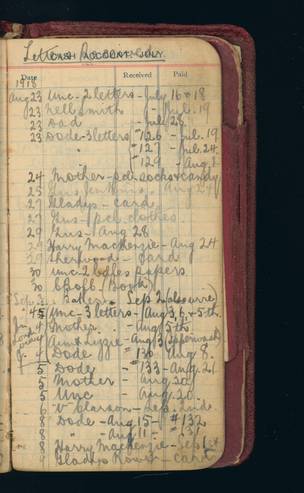 Letters Received
CASH ACCOUNT—JULY.
Date Received Paid
1918
Aug 23 Unc - 2 letters - July 16 & 18
23 Nell Smith - Jul. 19
23 Dad - Jul. 28
23 Dode - 3 letters # 126 - Jul. 19
" 127 - Jul. 24
" 129 - Aug. 1
24 Mother - pcl. socks & candy
25 Gus Jenkins. Aug 24
27 Gladys - card
27 Gus - pcl. clothes.
29 Gus - Aug 28
29 Harry Mackenzie - Aug 24
29 Sherwood - Card
30 Unc - 2 bdles papers
30
Sep. 3 Sep 2
4 Unc - 3 letters - Aug 3, 6, & 5th.
4 Mother. - Aug 5th.
4 Aunt Lizzie - Aug 3
4 Dode # 130 Aug 8.
5 Dode - # 133 - Aug. 21
5 Mother - Aug 20.
5 Unc - Aug 20.
6 V. Clarson -
8 Dode - Aug 15 - # 132
8 " - Aug 11 - # 131
8 Harry Mackenzie - Sep 1st
Gladys - card